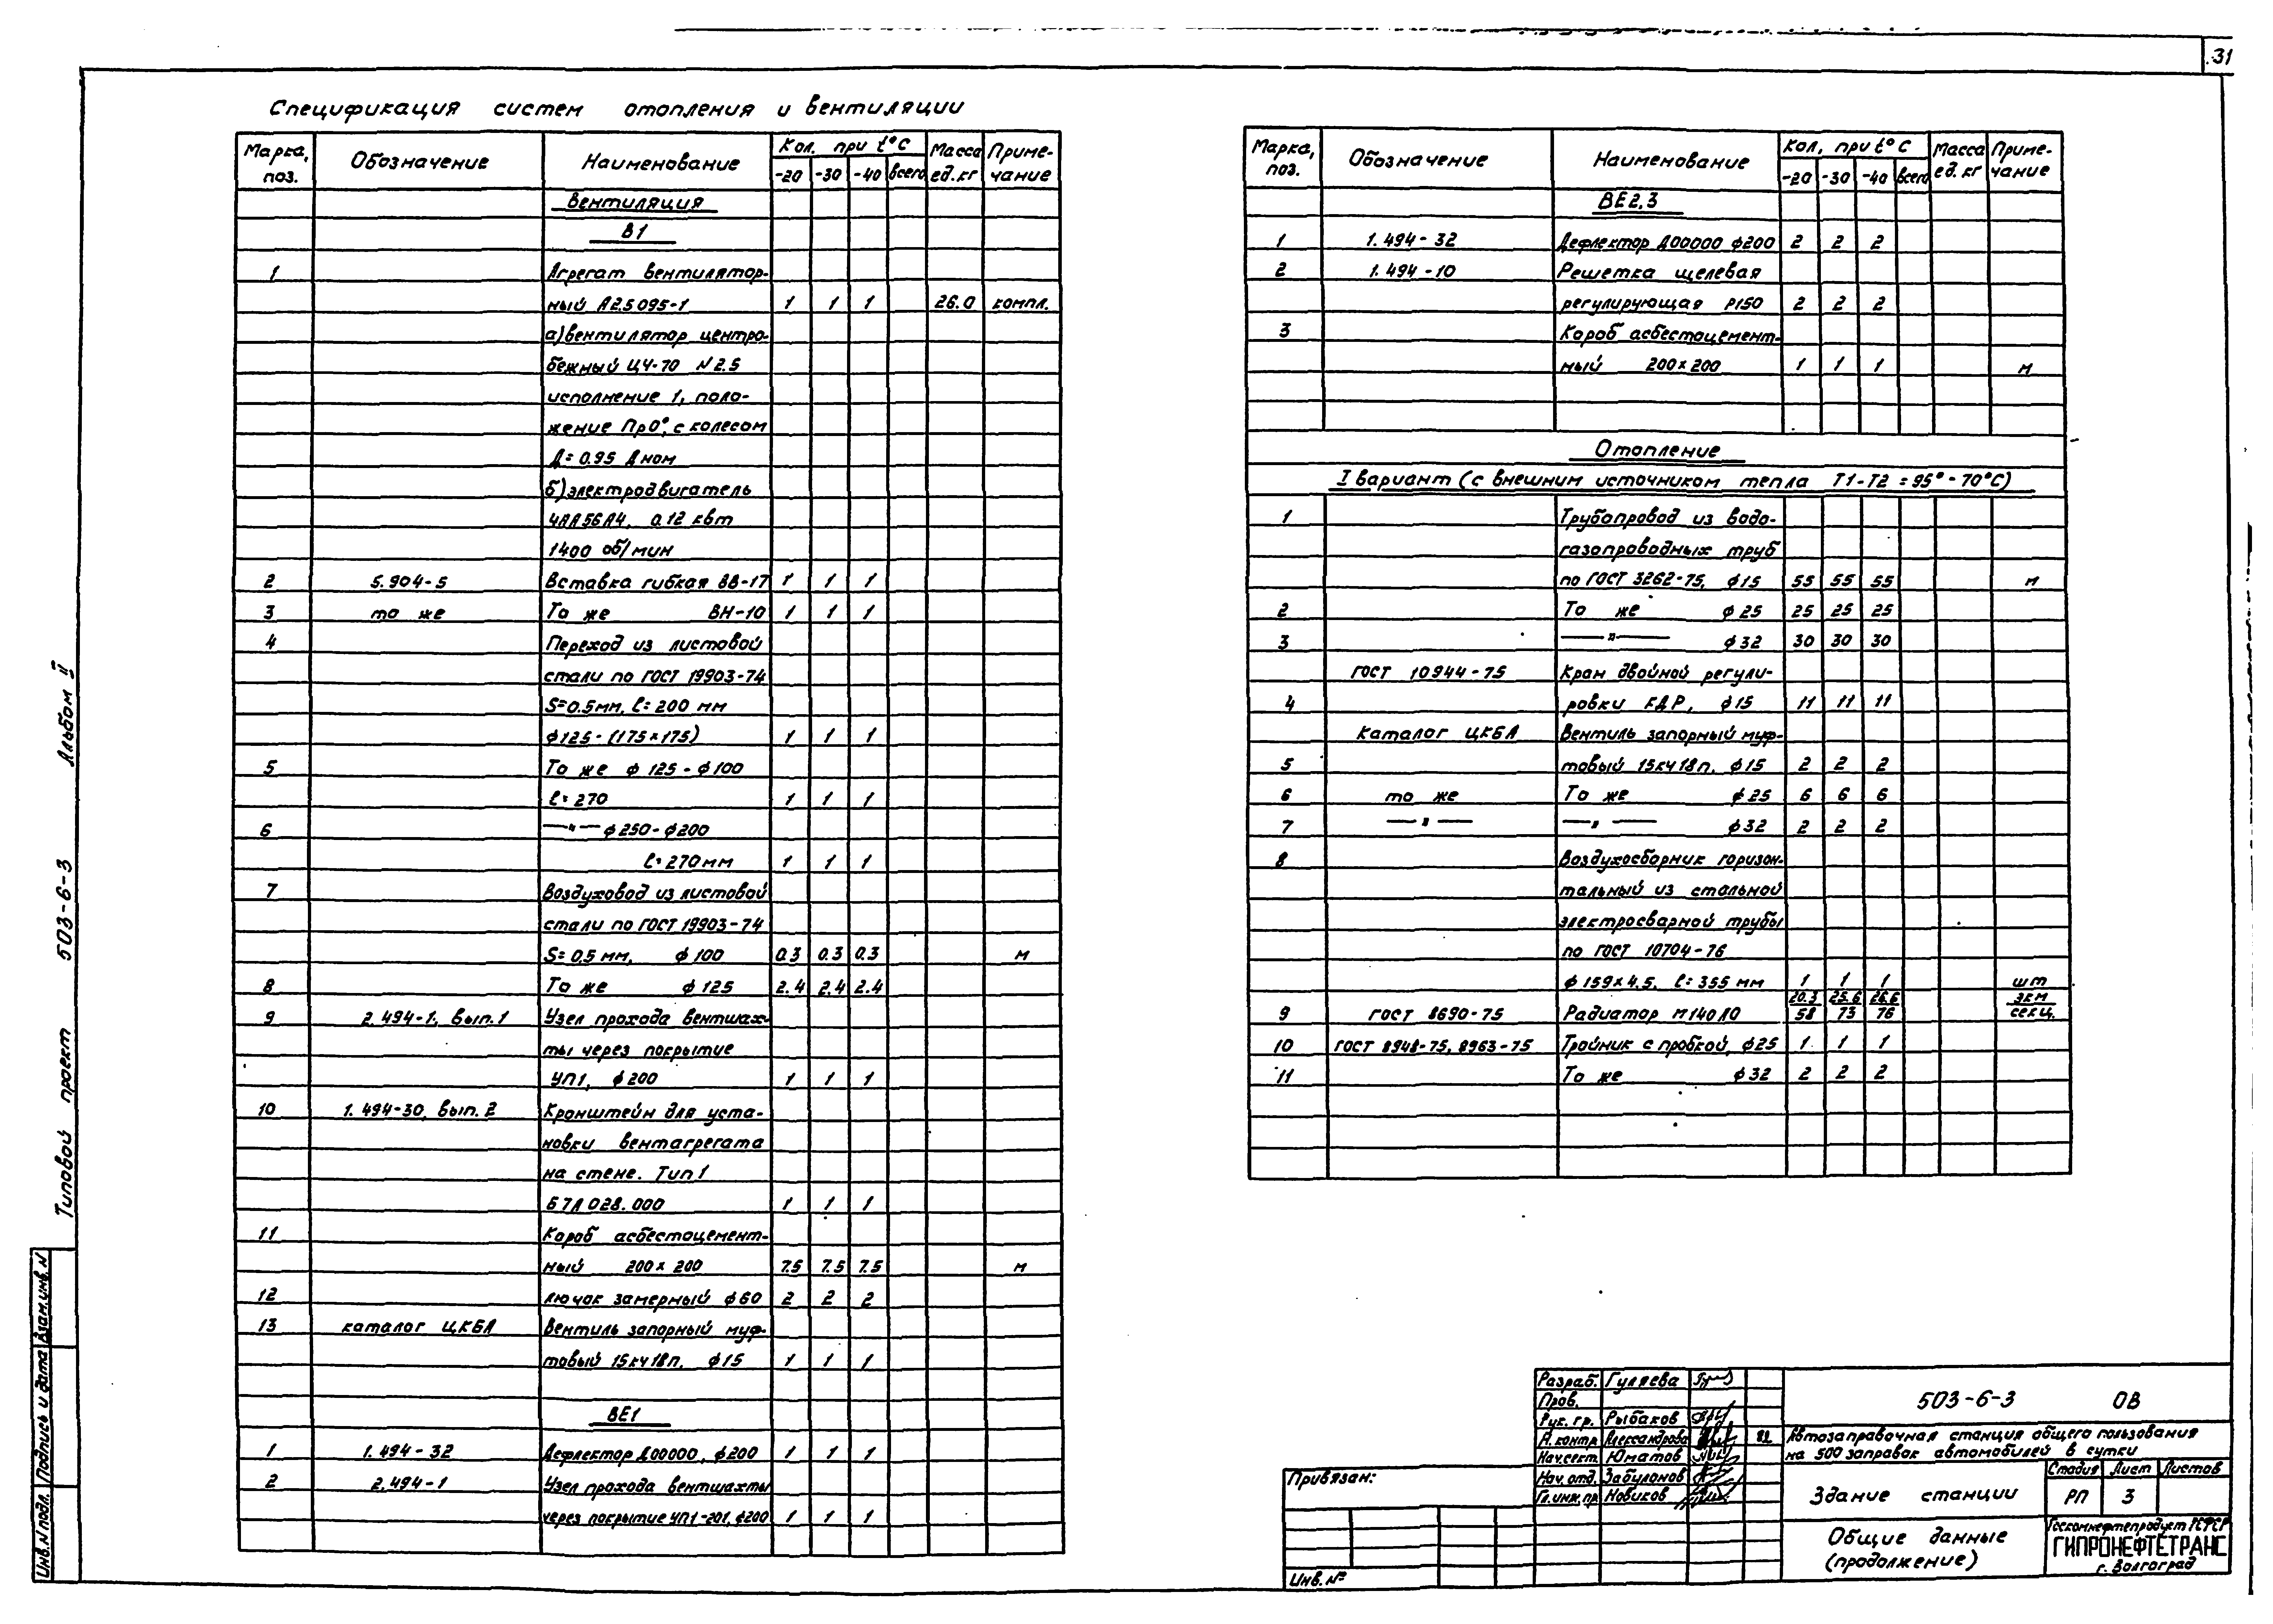 31
Спецификация систем отопления и вентиляции
Марка, поз. Обозначение Наименование Кол. при t°С Масса ед. кг Приме-чание
-20 -30 -40 всего
Вентиляция
В1
1 Агрегат вентилятор-
ный А2.5 095-1 1 1 1 26.0 компл.
а) вентилятор центро-
бежный Ц4-70 N 2.5
исполнение 1, поло-
жение Пр0°, с колесом
Д = 0.95 Дном
б) электродвигатель
4АА56А4, 0.12 квт
1400 об/мин
2 5.904-5 Вставка гибкая ВВ-17 1 1 1
3 то же То же ВН-10 1 1 1
4 Переход из листовой
стали по ГОСТ 19903-74
S=0.5мм, ℓ= 200 мм
ф125-(175×175) 1 1 1
5 То же ф 125 - ф 100
ℓ= 270 1 1 1
6 —"— ф250-ф200
ℓ= 270мм 1 1 1
7 Воздуховод из листовой
стали по ГОСТ 19903-74
S= 0.5 мм, ф 100 0.3 0.3 0.3 м
8 То же ф 125 2.4 2.4 2.4
9 2.494-1, вып.1 Узел прохода вентшах-
ты через покрытие
УП1, ф200 1 1 1
10 1.494-30, вып.2 Кронштейн для уста-
новки вентагрегата
на стене. Тип 1
Б7А 028.000 1 1 1
11 Короб асбестоцемент-
ный 200×200 7.5 7.5 7.5 м
12 Лючок замерный ф60 2 2 2
13 каталог ЦКБА Вентиль запорный муф-
товый 15кч18п, ф15 1 1 1
ВЕ1
1 1.494-32 Дефлектор Д00000, ф200 1 1 1
2 2.494-1 Узел прохода вентшахты
через покрытие УП1-201, ф200 1 1 1
Марка, поз. Обозначение Наименование Кол. при t°С Масса ед. кг Приме-чание
-20 -30 -40 всего
ВЕ2,3
1 1.494-32 Дефлектор Д00000 ф200 2 2 2
2 1.494-10 Решетка щелевая
регулирующая Р150 2 2 2
3 Короб асбестоцемент-
ный 200×200 1 1 1 м
Отопление
I вариант (с внешним источником тепла Т1-Т2 = 95°-70°С)
1 Трубопровод из водо-
газопроводных труб
по ГОСТ 3262-75, ф15 55 55 55 м
2 То же ф 25 25 25 25
3 —"— ф32 30 30 30
ГОСТ 10944-75 Кран двойной регули-
4 ровки КДР, ф15 11 11 11
каталог ЦКБА Вентиль запорный муф-
5 товый 15кч18п, ф15 2 2 2
6 то же То же ф25 6 6 6
7 —"— —"— ф32 2 2 2
8 Воздухосборник горизон-
тальный из стальной
электросварной трубы
по ГОСТ 10704-76
ф 159×4.5, ℓ= 355 мм 1 1 1 шт
20.3 25.6 26.6 экм
9 ГОСТ 8690-75 Радиатор М140А0 58 73 76 секц.
10 ГОСТ 8948-75, 8963-75 Тройник с пробкой, ф25 1 1 1
11 То же ф32 2 2 2
Типовой проект 503-6-3 Альбом II
Инв. N подл. Подпись и дата Взам. инв. N
Привязан:
Инв. №
Разраб. Гуляева
Пров.
Рук. гр. Рыбаков
Н. контр Александрова
Нач. сект. Юматов
Нач. отд. Забулонов
Гл. инж. пр Новиков
503-6-3 ОВ
Автозаправочная станция общего пользования
на 500 заправок автомобилей в сутки
Здание станции
Стадия Лист Листов
РП 3
Общие данные
(продолжение)
Госкомнефтепродукт РСФСР
ГИПРОНЕФТЕТРАНС
г. Волгоград